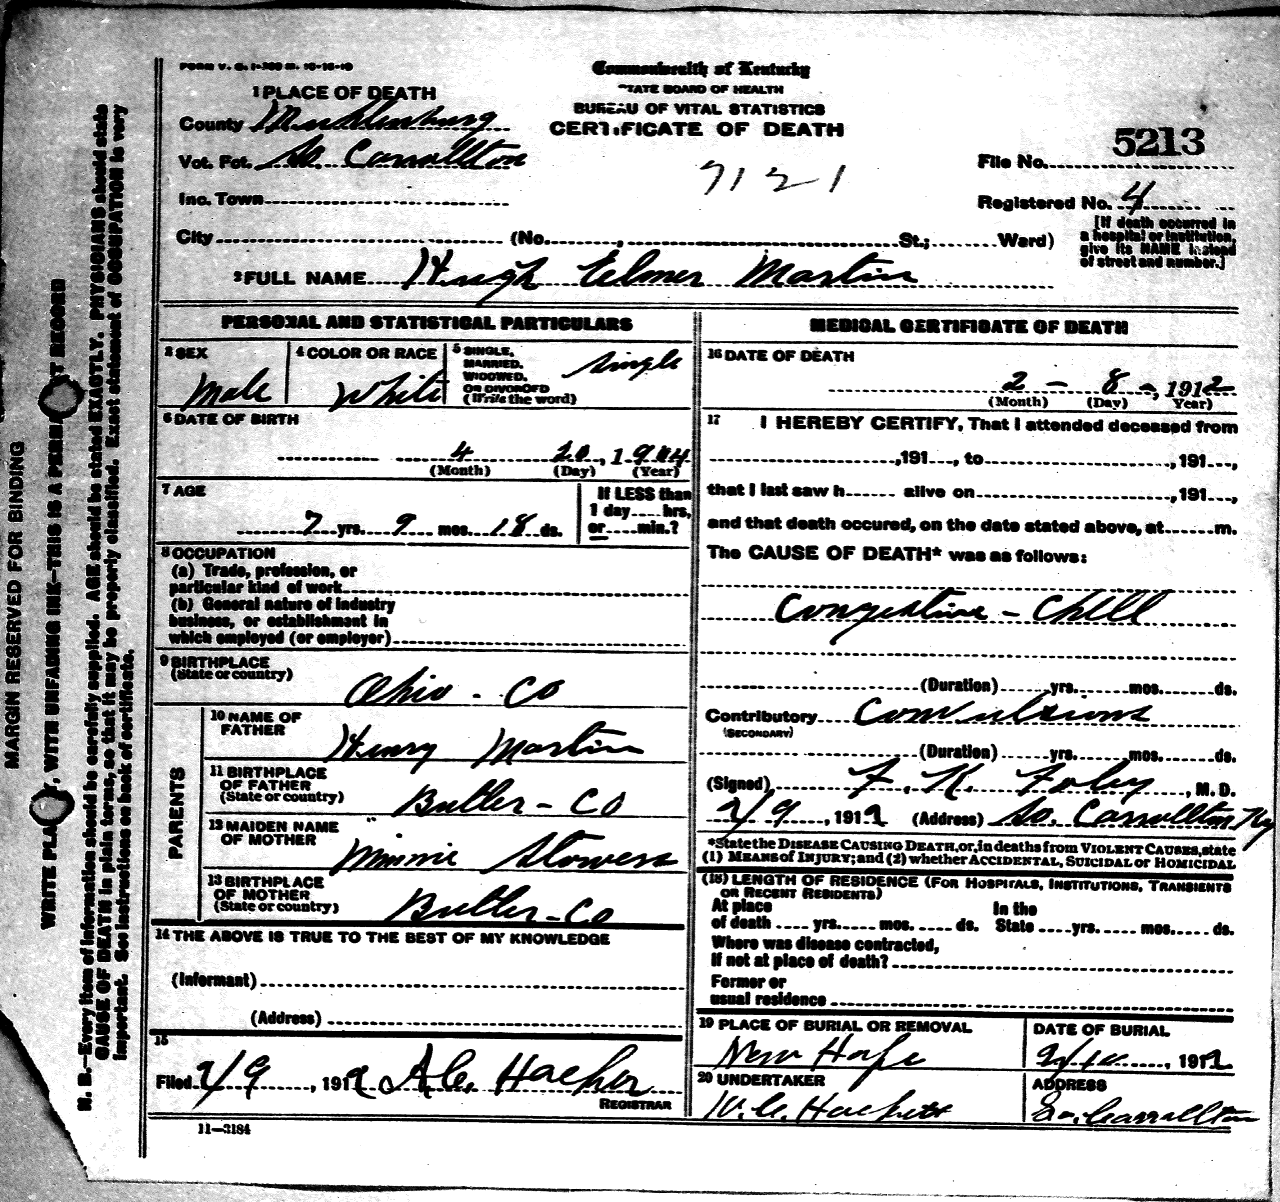 FORM V. S. 1-300 M. 10-16-10
Commonwealth of Kentucky
STATE BOARD OF HEALTH
BUREAU OF VITAL STATISTICS
CERTIFICATE OF DEATH
1 PLACE OF DEATH
County Muhlenburg
Vot. Pct. So. Carrollton
Inc. Town
City (No. , St.; Ward)
7121
File No. 5213
Registered No. 4
[If death occurred in
a hospital or institution,
give its NAME instead
of street and number.]
2 FULL NAME Hugh Elmer Martin
PERSONAL AND STATISTICAL PARTICULARS
3 SEX
Male
4 COLOR OR RACE
White
5 SINGLE,
MARRIED,
WIDOWED,
OR DIVORCED
(Write the word)
single
6 DATE OF BIRTH
4 20, 1904
(Month) (Day) (Year)
7 AGE
7 yrs. 9 mos. 18 ds.
If LESS than
1 day hrs,
or min.?
8 OCCUPATION
(a) Trade, profession, or
particular kind of work
(b) General nature of industry
business, or establishment in
which employed (or employer)
9 BIRTHPLACE
(State or country)
Ohio - Co
PARENTS
10 NAME OF
FATHER
Henry Martin
11 BIRTHPLACE
OF FATHER
(State or country)
Butler - Co
12 MAIDEN NAME
OF MOTHER
Minnie Stowers
13 BIRTHPLACE
OF MOTHER
(State or country)
Butler - Co
14 THE ABOVE IS TRUE TO THE BEST OF MY KNOWLEDGE
(Informant)
(Address)
15
Filed 2/9, 1912
REGISTRAR
11-3184
MEDICAL CERTIFICATE OF DEATH
16 DATE OF DEATH
2 - 8 -, 1912
(Month) (Day) Year)
17 I HEREBY CERTIFY, That I attended deceased from
,191 , to ,191 ,
that I last saw h alive on ,191 ,
and that death occured, on the date stated above, at m.
The CAUSE OF DEATH* was as follows:
Congestive - Chill
(Duration) yrs. mos. ds.
Contributory Convulsions
(SECONDARY)
(Duration) yrs. mos. ds.
(Signed) F. K. Foley, M. D.
2/9, 1912 (Address) So. Carrollton Ky
*State the DISEASE CAUSING DEATH, or, in deaths from VIOLENT CAUSES, state
(1) MEANS OF INJURY; and (2) whether ACCIDENTAL, SUICIDAL or HOMICIDAL
(18) LENGTH OF RESIDENCE (FOR HOSPITALS, INSTITUTIONS, TRANSIENTS
OR RECENT RESIDENTS)
At place
of death yrs. mos. ds.
In the
State yrs. mos. ds.
Where was disease contracted,
If not at place of death?
Former or
usual residence
19 PLACE OF BURIAL OR REMOVAL
New Hope
DATE OF BURIAL
2/10, 1912
20 UNDERTAKER
ADDRESS
So. Carrollton
MARGIN RESERVED FOR BINDING
WRITE PLA Y, WITH UNFADING INK—THIS IS A PERMA T RECORD
N. B.—Every item of information should be carefully supplied. AGE should be stated EXACTLY. PHYSICIANS should state
CAUSE OF DEATH in plain terms, so that it may be properly classified. Exact statement of OCCUPATION is very
important. See instructions on back of certificate.